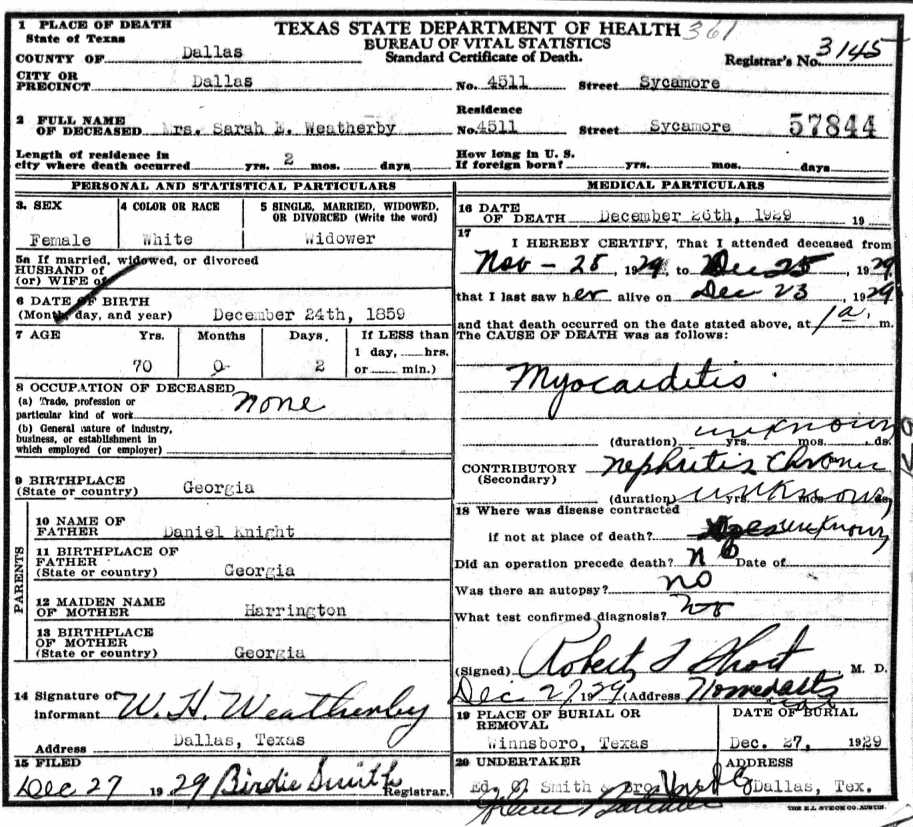 1 PLACE OF DEATH
TEXAS STATE DEPARTMENT OF HEALTH 361
State of Texas
BUREAU OF VITAL STATISTICS
COUNTY OF Dallas
Standard Certificate of Death.
Registrar's No. 3145
CITY OR PRECINCT Dallas No. 4511 Street Sycamore
2 FULL NAME OF DECEASED Mrs. Sarah E. Weatherby
Residence No. 4511 Street Sycamore 57844
Length of residence in city where death occurred yrs. 2 mos. days
How long in U. S. If foreign born? yrs. mos. days
PERSONAL AND STATISTICAL PARTICULARS
3. SEX
Female
4 COLOR OR RACE
White
5 SINGLE, MARRIED, WIDOWED, OR DIVORCED (Write the word)
Widower
5a If married, widowed, or divorced
HUSBAND of
(or) WIFE of
6 DATE OF BIRTH
(Month, day, and year) December 24th, 1859
7 AGE Yrs. Months Days. If LESS than
1 day, hrs.
70 0 2 or min.)
8 OCCUPATION OF DECEASED
(a) Trade, profession or
particular kind of work none
(b) General nature of industry,
business, or establishment in
which employed (or employer)
9 BIRTHPLACE
(State or country) Georgia
PARENTS
10 NAME OF
FATHER Daniel Knight
11 BIRTHPLACE OF
FATHER
(State or country) Georgia
12 MAIDEN NAME
OF MOTHER Harrington
13 BIRTHPLACE
OF MOTHER
(State or country) Georgia
14 Signature of
informant W. H. Weatherby
Address Dallas, Texas
15 FILED
Dec 27 1929 Birdie Smith Registrar.
MEDICAL PARTICULARS
16 DATE
OF DEATH December 26th, 1929 19
17
I HEREBY CERTIFY, That I attended deceased from
Nov - 25, 1929, to Dec 25, 1929
that I last saw her alive on Dec 23, 1929
and that death occurred on the date stated above, at 1 a. m.
The CAUSE OF DEATH was as follows:
Myocarditis
(duration) unknown yrs. mos. ds.
CONTRIBUTORY nephritis Chronic
(Secondary)
(duration) unknown yrs. mos. ds.
18 Where was disease contracted
if not at place of death? unknown
Did an operation precede death? no Date of
Was there an autopsy? no
What test confirmed diagnosis? no
(Signed) Robert L Short M. D.
Dec 27, 1929 (Address
19 PLACE OF BURIAL OR
REMOVAL
Winnsboro, Texas
DATE OF BURIAL
Dec. 27, 1929
20 UNDERTAKER
Ed. C. Smith & Bro
ADDRESS
Dallas, Tex.
THE E.L. STECK CO. AUSTIN.